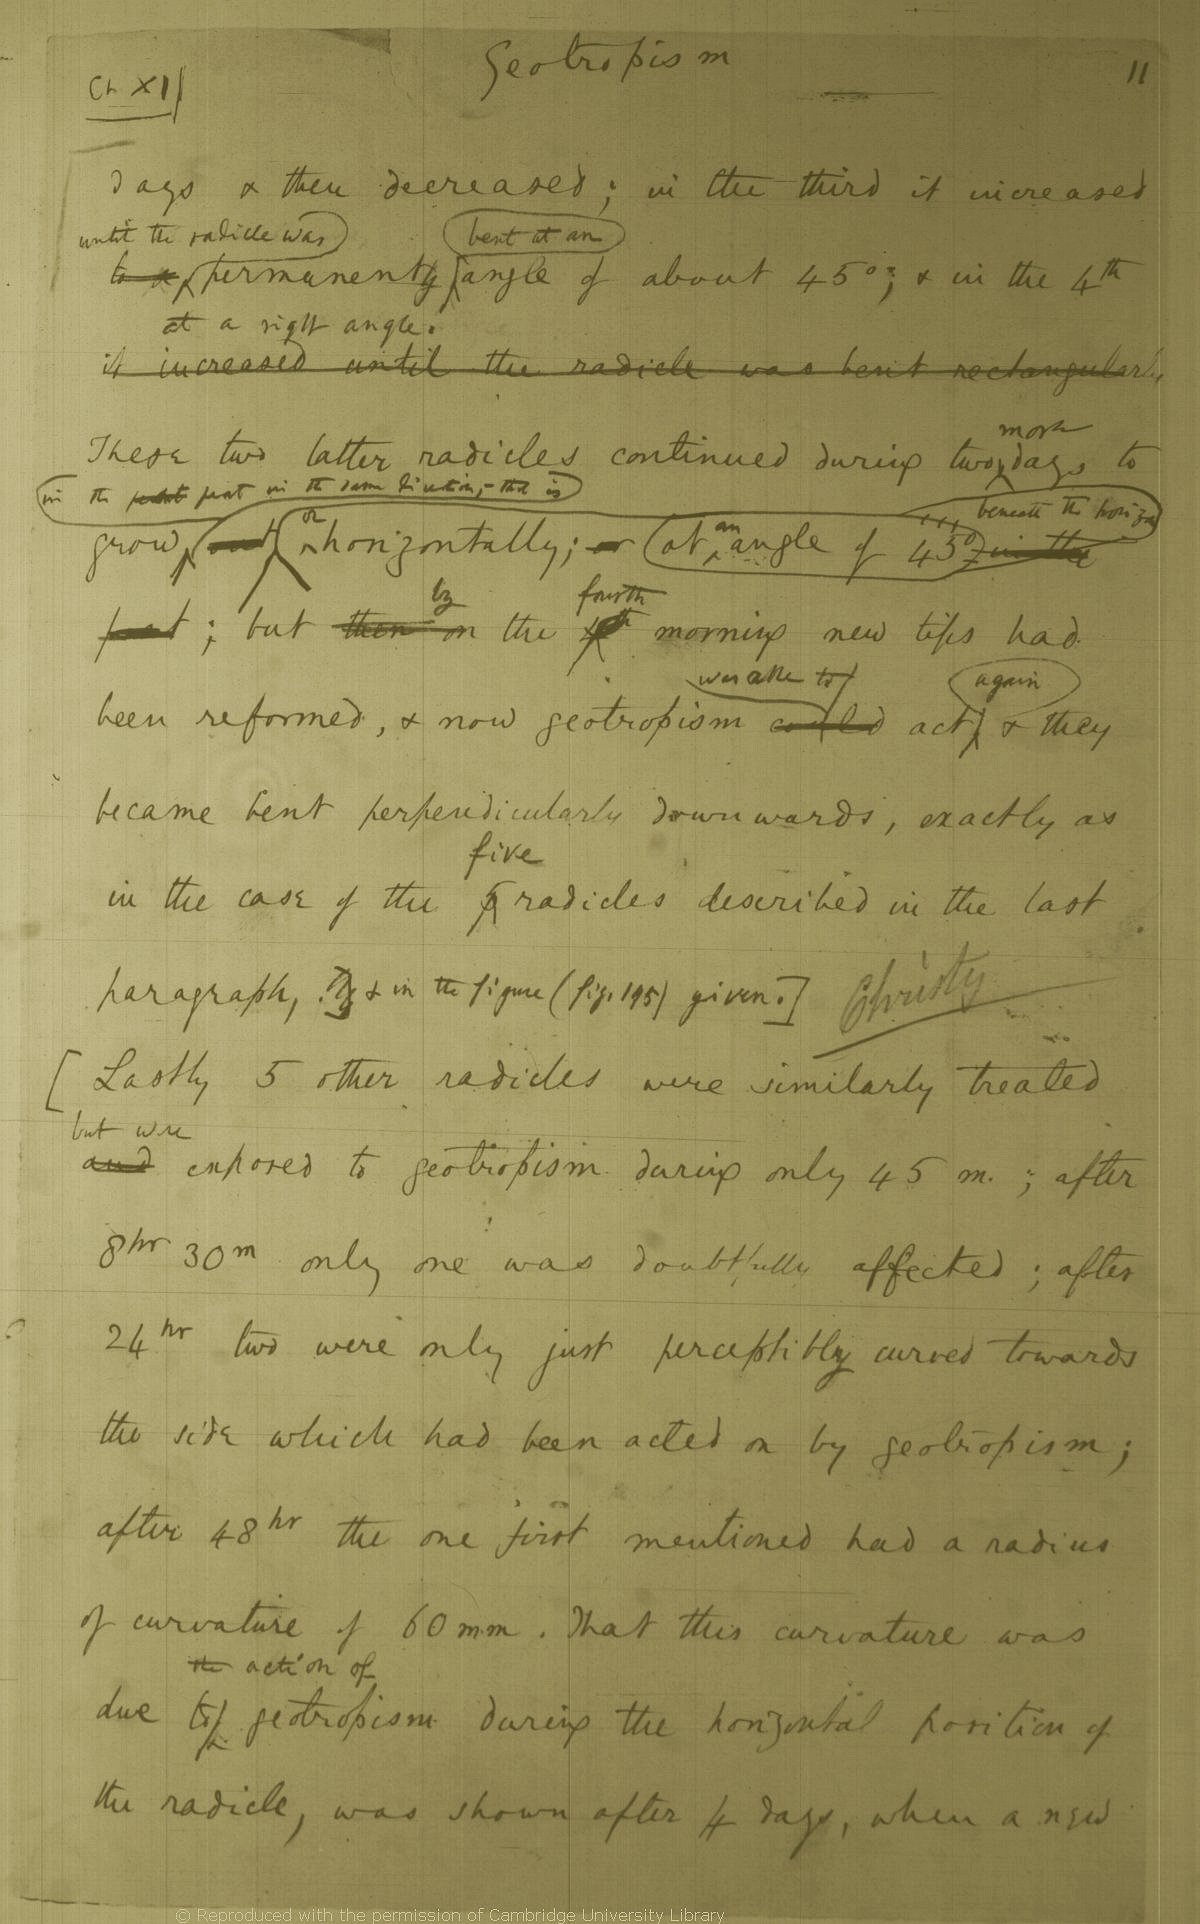 Geotropism
Ch XI
11
days & then decreased; in the third it increased
until the radicle was bent at an
to a permanently angle of about 45°; & in the 4th
at a right angle.
it increased until the radicle was bent rectangularly
more
These two latter radicles continued during two days to
in the peat in the same direction, – that is
or an beneath the horizon
grow, and horizontally; or at angle of 45° in the
by fourth
peat; but then on the 4th morning new tips had
was able to again
been reformed, & now geotropism could act & they
became bent perpendicularly downwards, exactly as
five
in the case of the 5 radicles described in the last
paragraph, & in the figure (fig. 195) given.]
Christy
[Lastly 5 other radicles were similarly treated
but were
and exposed to geotropism during only 45 m.; after
8hr 30m only one was doubtfully affected; after
24hr two were only just perceptibly curved towards
the side which had been acted on by geotropism;
after 48hr the one first mentioned had a radius
of curvature of 60 mm. That this curvature was
the action of
due to geotropism during the horizontal position of
the radicle, was shown after 4 days, when a new
© Reproduced with the permission of Cambridge University Library